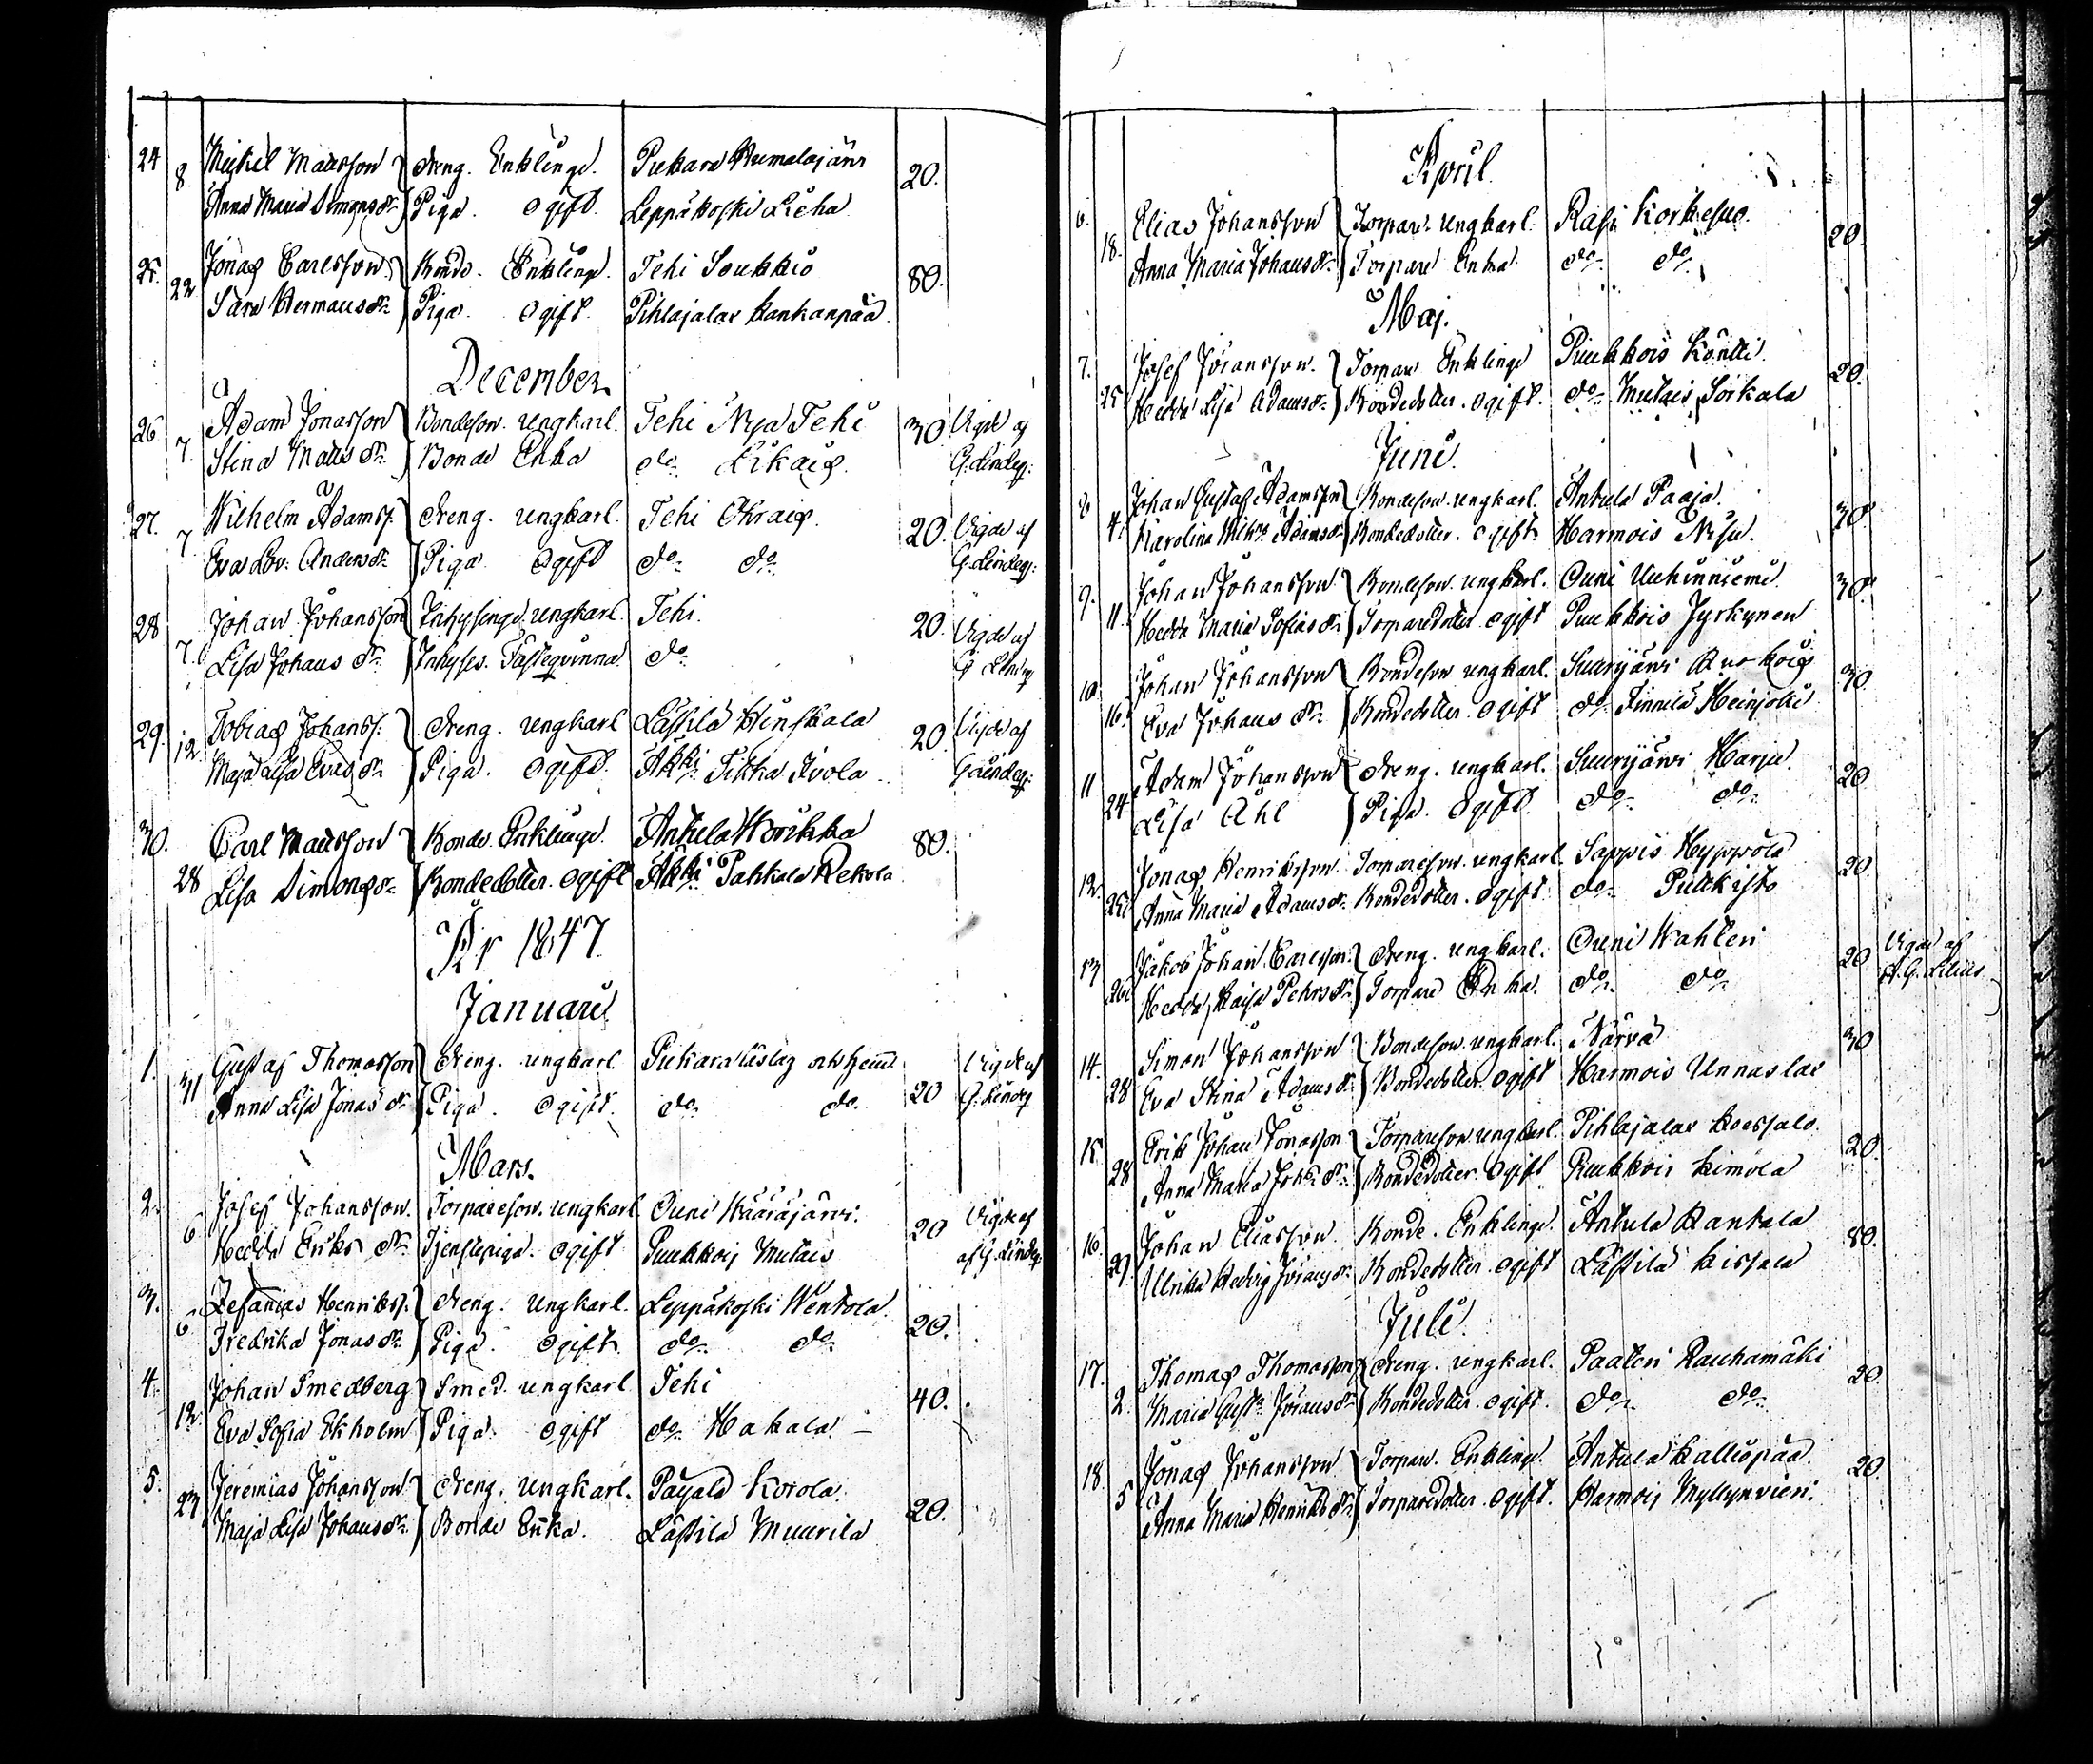 24 8. Mickel Mattsson } dreng. Enklinge. Pukara Humalajärvi 20.
Anna Maria Simonsdr } Piga. ogift. Leppäkoski Lieha
25. 22 Jonas Carlsson } Bonde. Enklinge. Tehi Soukkio 80.
Sara Hermansdr } Piga ogift. Pihlajalax Kankanpää
December
26 7 Adam Jonasson } Bondeson. ungkarl. Tehi Nya Tehi 30 Vigde af
Stina Matts dr } Bonde Enka do Likais. G. Lindeg:
27. 7 Wilhelm Adamss. } dreng. ungkarl. Tehi Ohrais. 20. Vigde af
Eva Lov. Andersdr } Piga ogift do do G. Lindeg:
28 7. Johan Johansson } Inhysinge. ungkarl. Tehi. 20. Vigde af
Lisa Johans dr } Inhyses. Fästeqvinna do
29. 12 Tobias Johanss: } dreng. ungkarl Lästilä 20 Vigde af
Maja Lisa Evas dr } Piga. ogift. Tikka Ivola G. Lindeg:
30. 28 Carl Mattsson } Bonde. Enklinge. Anttila 80.
Lisa Simonsdr } Bondedotter. ogift Pahkala Rekola
År 1847.
Januari
1. 31 Gustaf Thomasson } dreng. ungkarl. Pukara 20 Vigde af
Anna Lisa Jonas dr } Piga. ogift. do do. G. Lindeg
Mars.
2. 6 Josef Johansson. Torpareson. ungkarl Ouni Wääräjärvi. 20 Vigde af
Hedda Eriks dr Tjenstepiga. ogift Puukkois Mutais af G. Lindeg
3. 6 Zefanias Henrikss. } dreng. ungkarl. Leppäkoski Wentola. 20.
Fredrika Jonasdr } Piga. ogift do do
4. 12. Johan Smedberg } Smed. ungkarl Tehi 40.
Eva Sofia Ekholm } Piga. ogift do Hakala
5. 23. Jeremias Johansson } dreng. ungkarl. Päyälä Korola. 20.
Maja Lisa Johansdr } Bonde Enka. Lästilä Muurila
April.
6. 18. Elias Johansson } Torpare. ungkarl. Rasi Korkesuo. 20.
Anna Maria Johansdr } Torpare Enka. do do.
Maj.
7. 25. Josef Göransson. } Torpare Enklinge Puukkois Köntti. 20.
Hedda Lisa Adamsdr } Bondedotter. ogift. do Mutais Sorkala
Juni.
8 4. Johan Gustaf Adamsson } Bondeson. ungkarl. Anttila Paaja. 30.
Karolina Wilh:a Adamsdr } Bondedotter. ogift Harmois Nisu.
9. 11. Johan Johansson } Bondeson. ungkarl. Ouni Uuhinniemi. 30.
Hedda Maria Sofiasdr } Torparedotter ogift Puukkois Jyrkynen
10. 16. Johan Johansson } Bondeson ungkarl. Suurijärvi 30.
Eva Johans dr } Bondedotter. ogift do Finnilä Heinjoki
11 24 Adam Johansson } dreng. ungkarl. Suurijärvi Harju. 20
Lisa Ahl } Piga. ogift. do do
12. 25. Jonas Henriksson. Torpareson. ungkarl Sappis Hyppölä 20
Anna Maria Adamsdr Bondedotter. ogift do
13 26. Jakob Johan Carlsson. } dreng. ungkarl. Ouni Wahteri 20 Vigde af
Hedda Kaisa Pehrsdr } Torpare Enka. do do A. G. Lilius
14. 28 Simon Johansson } Bondeson ungkarl. Närvä 30
Eva Stina Adamsdr } Bondedotter. ogift Harmois Unnaslax
15 28 Erik Johan Jonasson } Torpareson ungkarl. Pihlajalax 20.
Anna Maria Joh:s dr } Bondedotter. ogift Puukkois Kimola
16. 29. Johan Eliasson. Bonde. Enklinge. Anttila Kantala 80.
Ulrika Hedvig Göransdr Bondedotter. ogift Lästilä Kissala
Juli.
17. 2. Thomas Thomasson } dreng. ungkarl. Paateri Rauhamäki 20.
Maria Gust:a Göransdr } Bondedotter. ogift. do do
18. 5 Jonas Johansson } Torpare. Enklinge. Anttila Kalliopää. 20.
Anna Maria Henriksdr } Torparedotter. ogift. Harmois Myllynvieri.